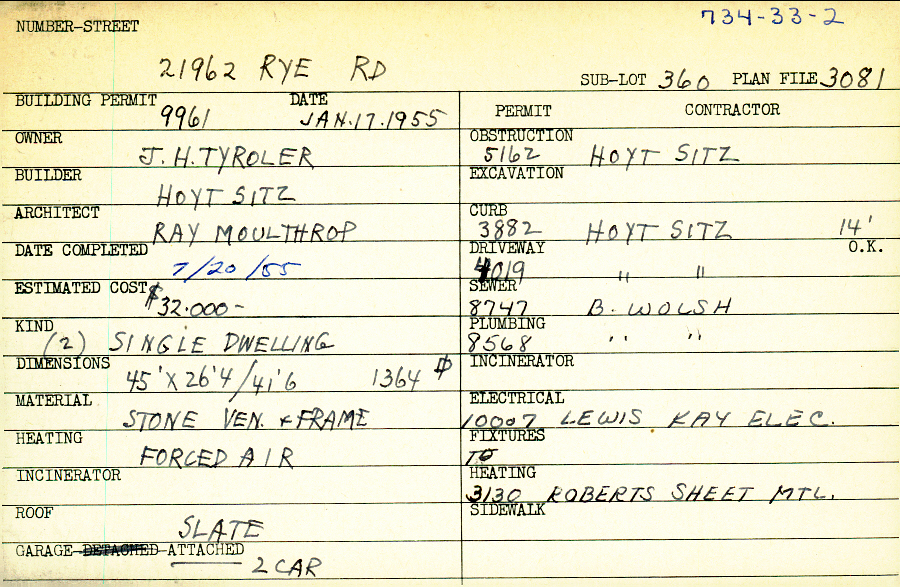 734-33-2
NUMBER-STREET
21962 RYE RD
SUB-LOT 360 PLAN FILE 3081
BUILDING PERMIT DATE
9961 JAN.17.1955
OWNER
J. H. TYROLER
BUILDER
HOYT SITZ
ARCHITECT
RAY MOULTHROP
DATE COMPLETED
7/20/55
ESTIMATED COST
$32.000-
KIND
(2) SINGLE DWELLING
DIMENSIONS
45'X26'4/41'6 1364
MATERIAL
STONE VEN. + FRAME
HEATING
FORCED AIR
INCINERATOR
ROOF
SLATE
GARAGE-DETACHED-ATTACHED
2 CAR
PERMIT CONTRACTOR
OBSTRUCTION
5162 HOYT SITZ
EXCAVATION
CURB
3882 HOYT SITZ 14'
DRIVEWAY O.K.
4019 " "
SEWER
8747 B. WOLSH
PLUMBING
8568 " "
INCINERATOR
ELECTRICAL
10007 LEWIS KAY ELEC.
FIXTURES
TO
HEATING
3130 ROBERTS SHEET MTL.
SIDEWALK